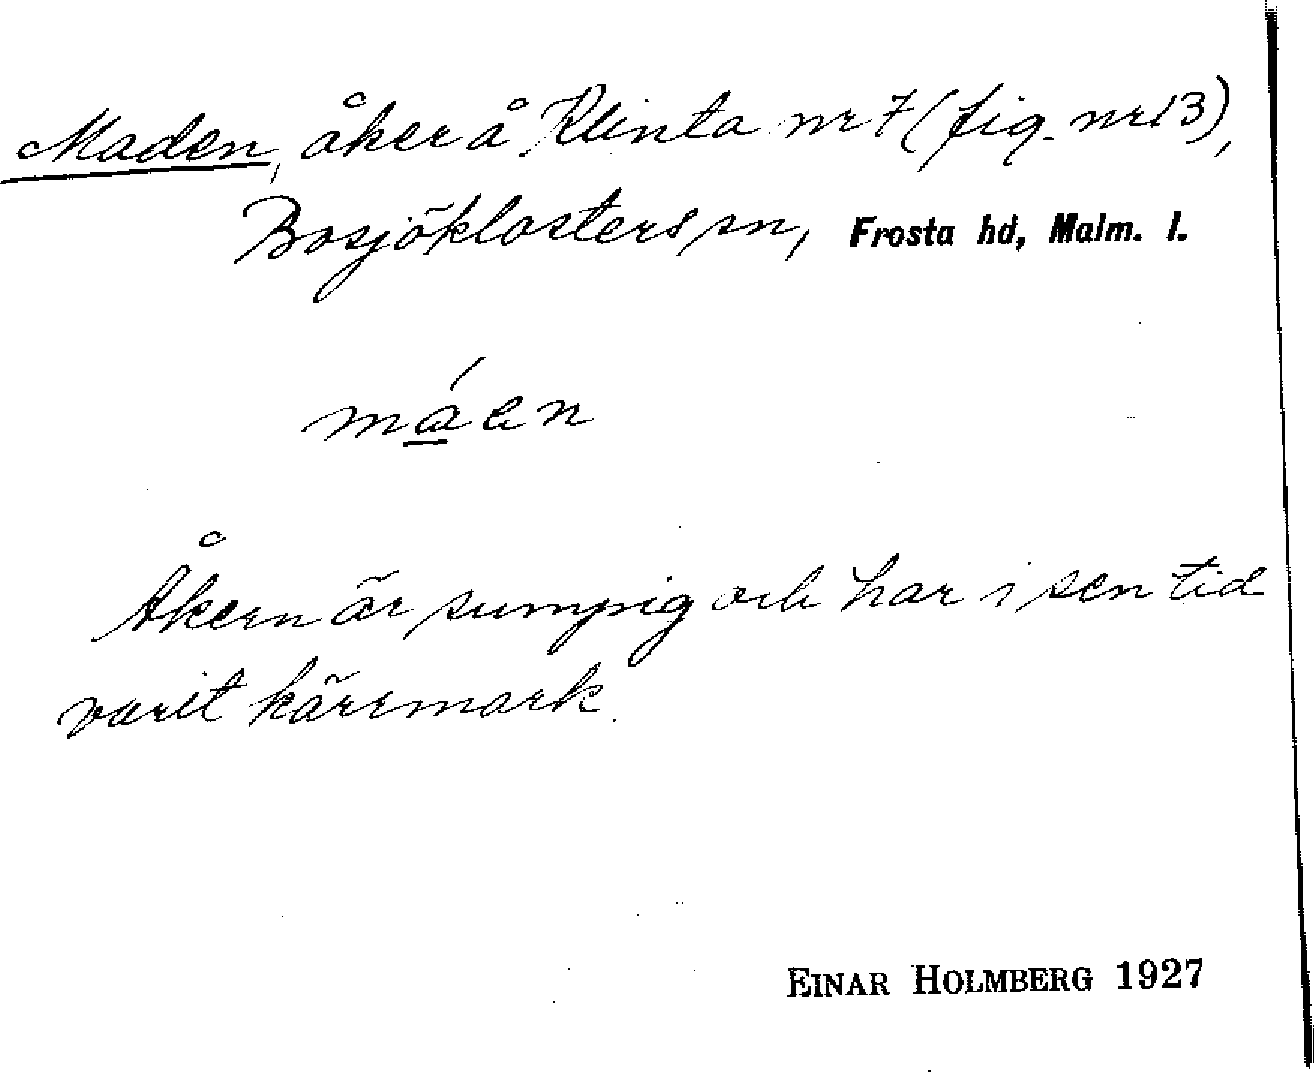 Maden, åker å Klinta nr 7 (fig. nr 13),
Bosjöklosters sn, Frosta hd, Malm. l.
máen
Åkern är sumpig och har i sen tid
varit kärrmark.
EINAR HOLMBERG 1927